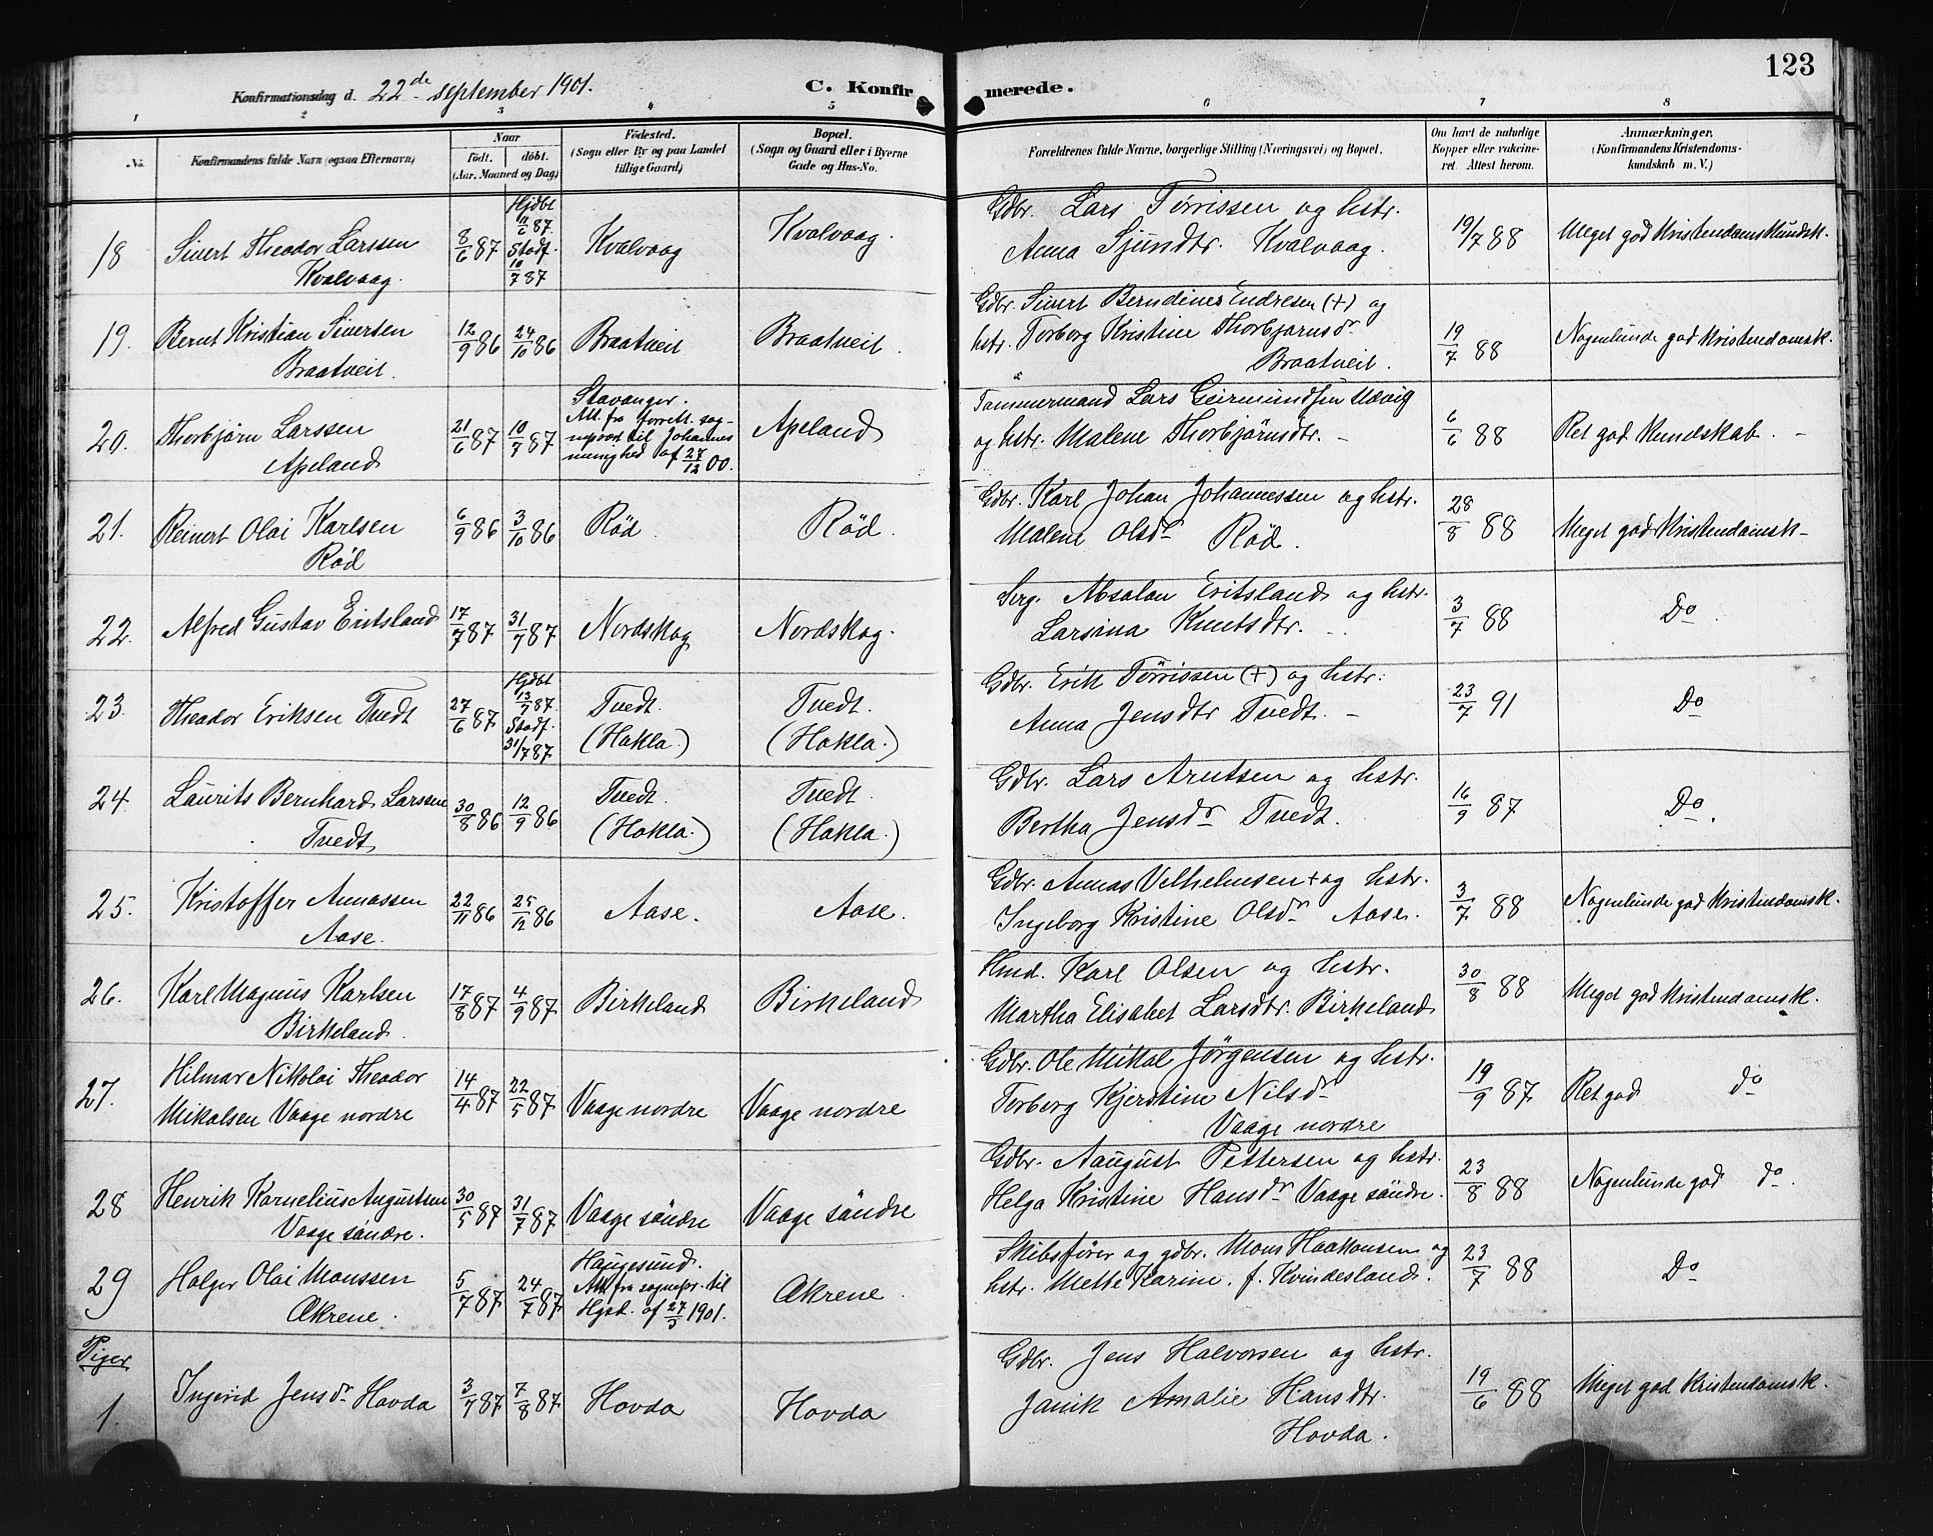 123
Konfirmationsdag d. 22de september 1901. C. Konfirmerede.
1 2 3 4 5 6 7 8
No. Konfirmandens fulde Navn (ogsaa Efternavn) Naar födt. döbt. (Aar, Maaned og Dag) Födested. (Sogn eller By og paa Landet tillige Gaard) Bopæl. (Sogn og Gaard eller i Byerne Gade og Hus-No. Forældrenes fulde Navne, borgerlige Stilling (Næringsvei) og Bopæl. Om havt de naturlige Kopper eller vakcineret. Attest herom. Anmærkninger. (Konfirmandens Kristendomskundskab m. V.)
18 Sivert Theodor Larssen Kvalvaag. 8/6 87 Hjdbt 11/6 87. Stadf. 10/7 87 Kvalvaag Kvalvaag. Gdbr. Lars Tørrissen og hstr. Anna Sjundtr. Kvalvaag. 19/7 88 Meget god Kristendomskundsk.
19. Bernt Kristian Siversen Braatveit. 12/9 86 24/10 86 Braatveit Braatveit. Gdbr. Sivert Berndines Endresen (+) og hstr. Torborg Kristine Thorbjørnsdr Braatveit. 19/7 88 Nogenlunde god Kristendomsk.
20. Thorbjørn Larssen Apeland 21/6 87 10/7 87 Stavanger. Att. fra forrett. sognepræst til Johannes menighed af 27/12 00. Apeland Tømmermand Lars Geirmundsen Uævig og hstr. Malene Thorbjørnsdtr. – 6/6 88 Ret god Kundskab. –
21. Reinert Olai Karlsen Rød 6/9 86 3/10 86 Rød. Rød. Gdbr. Karl Johan Johannessen og hstr. Malene Olsdr Rød. 28/8 88 Meget god Kristendomsk–
22. Alfred Gustav Eritsland 17/7 87 31/7 87 Nordskog Nordskog. Serg. Absalon Eritsland og hstr. Larsina Knutsdtr. 3/7 88 Do.
23. Theodor Eriksen Tvedt 27/6 87 Hjdbt 13/7 87. Stadf. 31/7 87 Tvedt. (Hakla.) Tvedt. (Hakla.) Gdbr. Erik Tørrissen (+) og hstr. Anna Jensdtr Tvedt. – 23/7 91 Do
24 Laurits Bernhard Larssen Tvedt 30/8 86 12/9 86 Tvedt. (Hakla.) Tvedt. (Hakla.) Gdbr. Lars Arntsen og hstr. Bertha Jensdr Tvedt. 16/9 87 Do.
25. Kristoffer Annassen Aase. 22/11 86 25/12 86 Aase. Aase. Gdbr. Annas Velhelmsen + og hstr. Ingeborg Kristine Olsdr Aase. 3/7 88 Nogenlunde god Kristendomsk.
26. Karl Magnus Karlsen Birkeland. 17/8 87 4/9 87 Birkeland Birkeland Hmd. Karl Olsen og hstr. Martha Elisabet Larsdtr. Birkeland 30/8 88 Meget god Kristendomsk.
27. Hilmar Nikolai Theodor Mikalsen Vaage nordre 14/4 87 22/5 87 Vaage nordre Vaage nordre Gdbr. Ole Mikal Jørgensen og hstr. Torborg Kjerstine Nilsdr Vaage nordre 19/9 87 Ret god do
28 Henrik Kornelius Augustsen Vaage söndre. 30/5 87 31/7 87 Vaage söndre Vaage söndre Gdbr. Aaugust Pettersen og hstr. Helga Kristine Hansdr Vaage söndre. 23/8 88 Nogenlunde god do.
29 Holger Olai Monssen Økrene. 5/7 87 24/7 87 Haugesund. Att. fra sognepr. til Hgsd. af 27/3 1901. Økrene. Skibsfører og gdbr. Mons Haakonsen og hstr. Mette Karine. f. Kvindesland. 23/7 88 Do
Piger
1. Ingerid Jensdr Hovda 3/7 87 7/8 87 Hovda Hovda Gdbr. Jens Halvorsen og hstr. Janik Amalie Hansdtr. Hovda. 19/6 88 Meget god Kristendomsk.